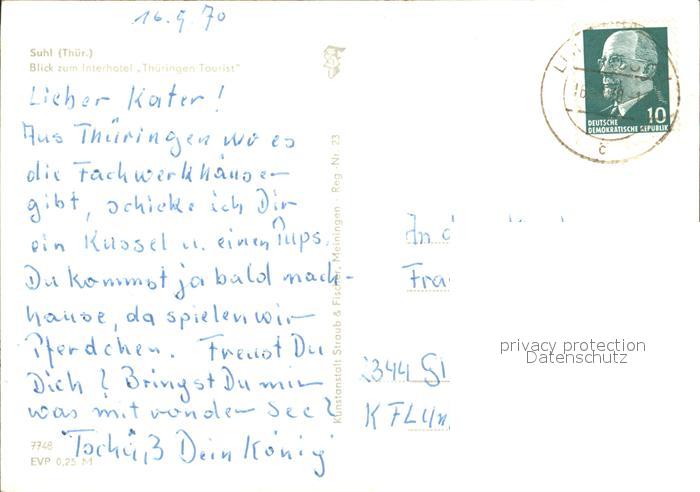 16.9.70
Suhl (Thür.)
Blick zum Interhotel „Thüringen Tourist"
Lieber Kater!
Aus Thüringen wo es
die Fachwerkhäuser
gibt, schicke ich Dir
ein Küssel u. einen Pups.
Du kommst ja bald nach-
hause, da spielen wir
Pferdchen. Freust Du
Dich? Bringst Du mir
was mit von der See?
Tschüß Dein König
7748
EVP 0,25 M
Kunstanstalt Straub & Fischer, Meiningen Reg.-Nr. 23
10
DEUTSCHE
DEMOKRATISCHE REPUBLIK
c
An
2344
privacy protection
Datenschutz